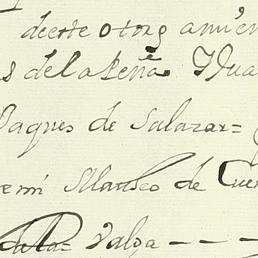 deeste otorgamien
s de la Peña Y Jua
Vaques de Salazar=
emi Mauseo de Cue
Valga - - -